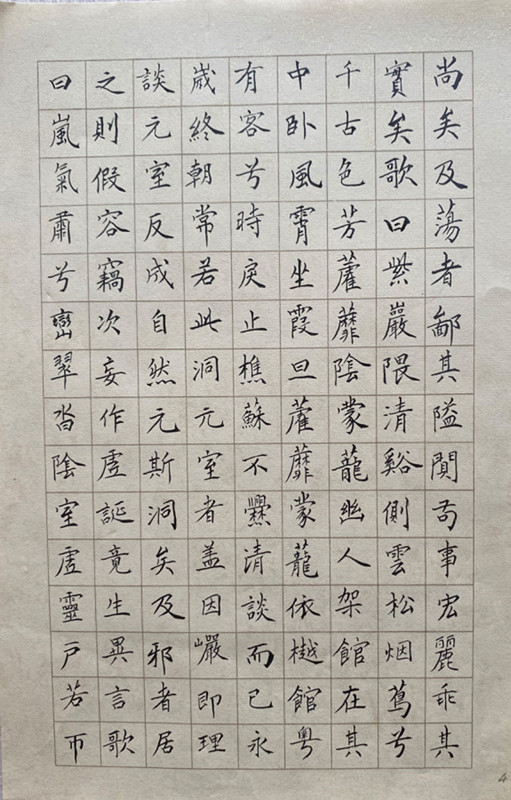 尚矣及蕩者鄙其隘閴苟事宏麗乖其
實矣歌曰紫巖隈清谿側雲松烟蔦兮
千古色芳藿蘼陰蒙龍幽人架館在其
中卧風霄坐霞旦藿蘼蒙蘢依樾館粵
有客兮時戾止樵蘇不爨清談而已永
歲終朝常若此洞元室者盖因巖即理
談元室反成自然元斯洞矣及邪者居
之則假容竊次妄作虛誕竟生異言歌
曰嵐氣肅兮巒翠沓陰室虛靈戶若帀
4